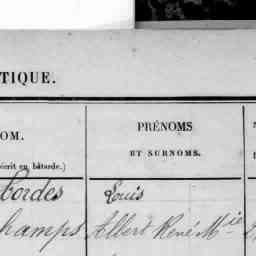 TIQUE.
OM. PRÉNOMS
ET SURNOMS.
écrit en bâtarde.)
Cordes Louis
hamps Albert René Mie